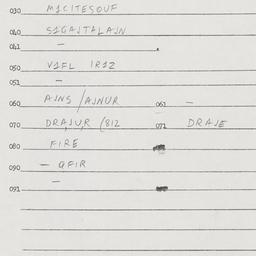 030 M1CITESOUF
040 S1GAJTALAJN
041 —
050 V1FL IR1Z
051 —
060 AJNS / AJNUR 061 —
070 DRAJUR (812 071 DRAJE
080 FIRE
090 — GFIR
091 —